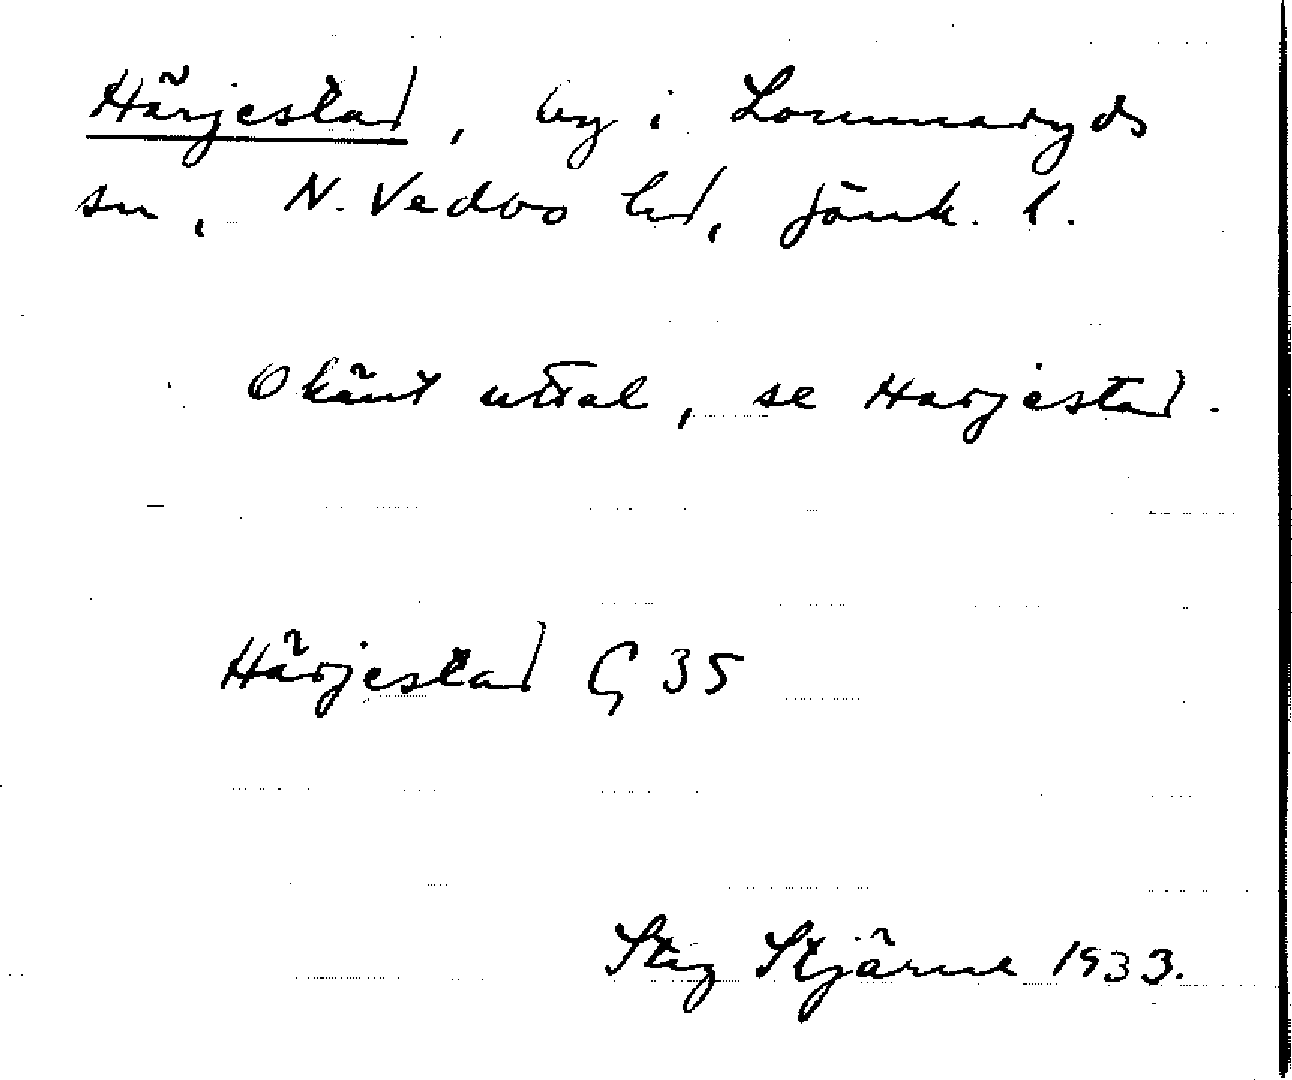 Härjestad, by i Lommaryds
sn, N. Vedbo hd, Jönk. l.
Okänt uttal, se Harjestad.
Härjestad G 35
Stig Stjärne 1933.